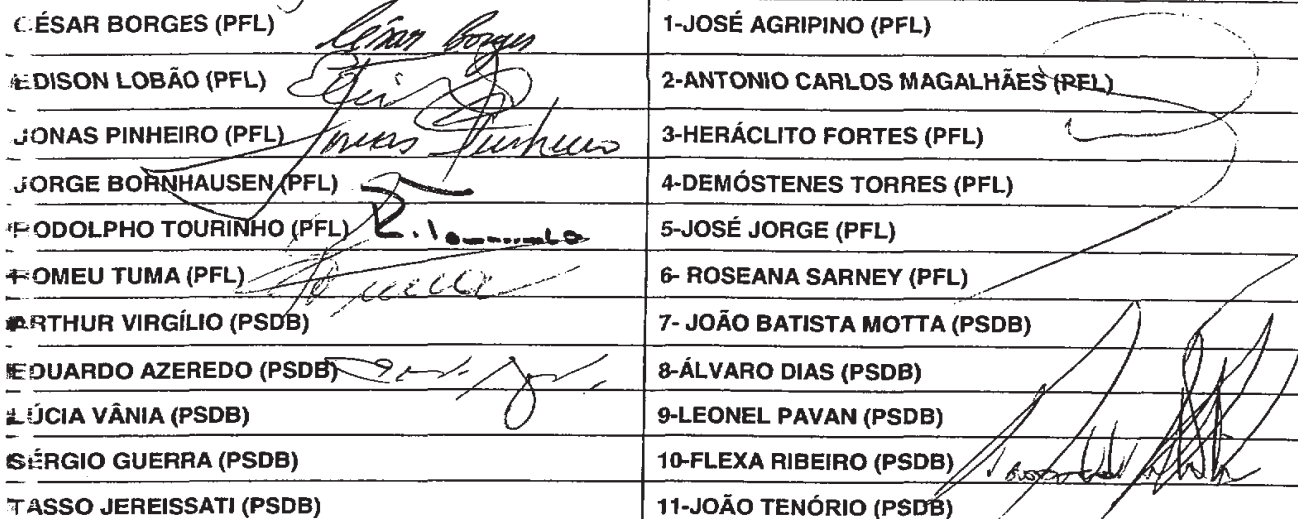 CÉSAR BORGES (PFL) César Borges
1-JOSÉ AGRIPINO (PFL)
EDISON LOBÃO (PFL)
2-ANTONIO CARLOS MAGALHÃES (PFL)
JONAS PINHEIRO (PFL) Jonas Pinheiro
3-HERÁCLITO FORTES (PFL)
JORGE BORNHAUSEN (PFL)
4-DEMÓSTENES TORRES (PFL)
RODOLPHO TOURINHO (PFL)
5-JOSÉ JORGE (PFL)
ROMEU TUMA (PFL)
6- ROSEANA SARNEY (PFL)
ARTHUR VIRGÍLIO (PSDB)
7- JOÃO BATISTA MOTTA (PSDB)
EDUARDO AZEREDO (PSDB)
8-ÁLVARO DIAS (PSDB)
LÚCIA VÂNIA (PSDB)
9-LEONEL PAVAN (PSDB)
SÉRGIO GUERRA (PSDB)
10-FLEXA RIBEIRO (PSDB)
TASSO JEREISSATI (PSDB)
11-JOÃO TENÓRIO (PSDB)